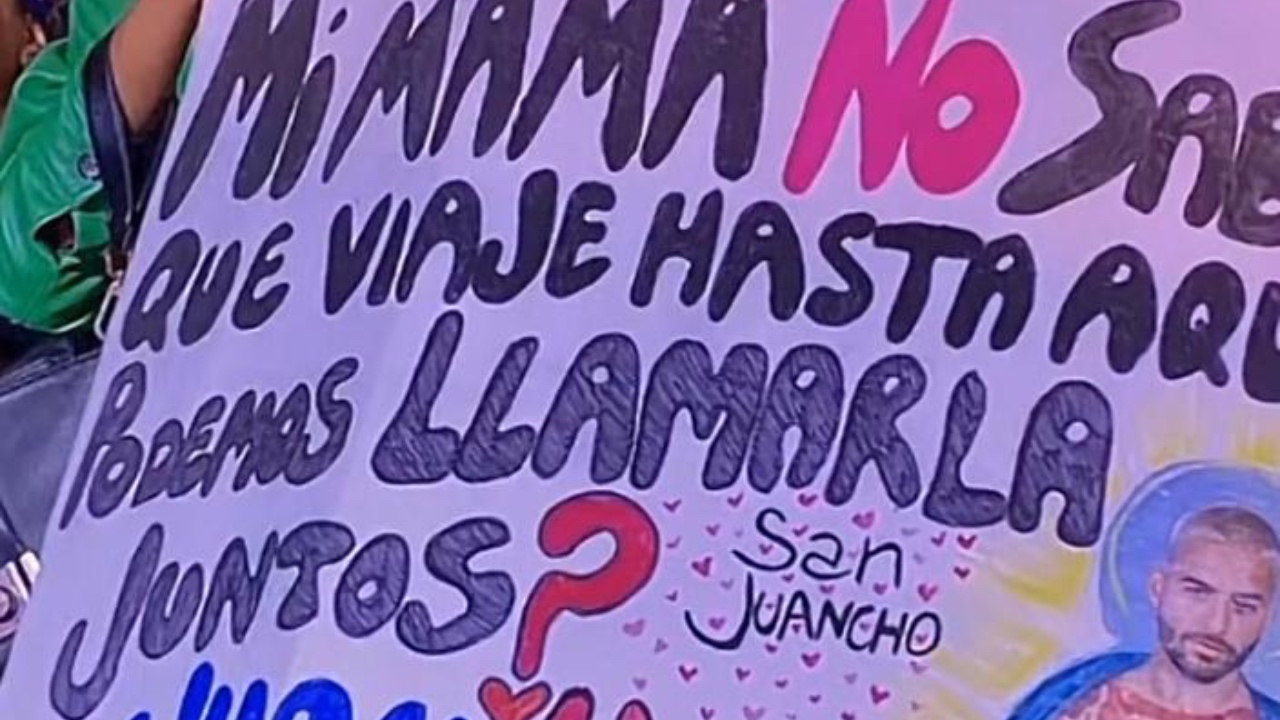 Mi MAMA NO SAB
QUE VIAJE HASTA AQU
PODEMOS LLAMARLA
JUNTOS?
San
JUANCHO